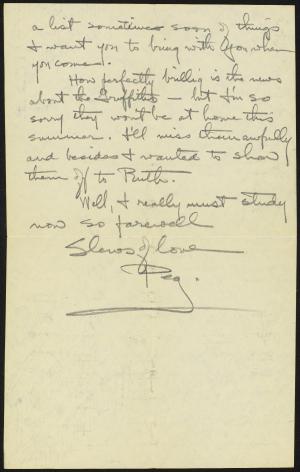 a list sometime soon of things
I want you to bring with you when
you come.
How perfectly bullig is the news
about the Griffiths — but I'm so
sorry they won't be at home this
summer. I'll miss them awfully
and besides I wanted to show
them off to Ruth.
Well, I really must study
now so farewell
Slews of love
Peg.